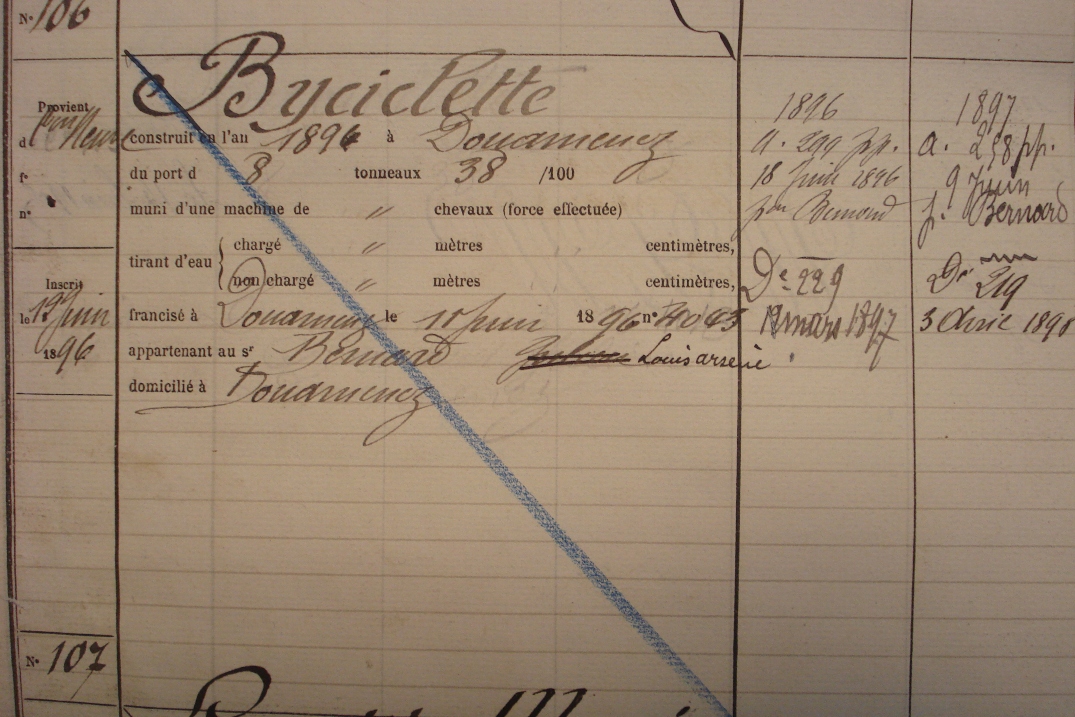 N° 106
Byciclette
Provient
d
f°
n°
construit en l'an 1896 à Douarnenez
du port d 8 tonneaux 38 /100
muni d'une machine de " chevaux (force effectuée)
tirant d'eau { chargé " mètres centimètres,
non chargé " mètres centimètres,
francisé à Douarnenez le 11 Juin 1896 n°
appartenant au sr Bernard Louis arsène
domicilié à Douarnenez
Inscrit
le 12 Juin
1896
1896
a. 299 pp.
18 Juin 1896
par Bernard
De 229
mars 1897
1897
a. 258 pp.
9 Juin
p. Bernard
De 219
3 Avril 1898
N° 107